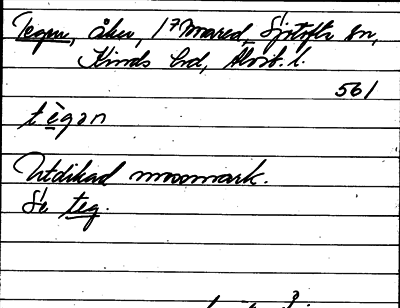 Tegen, åker, 17 Mared, Sjötofta sn,
Kinds hd, Älvsb. l.
561
tègən
Utdikad mossmark.
Se teg.